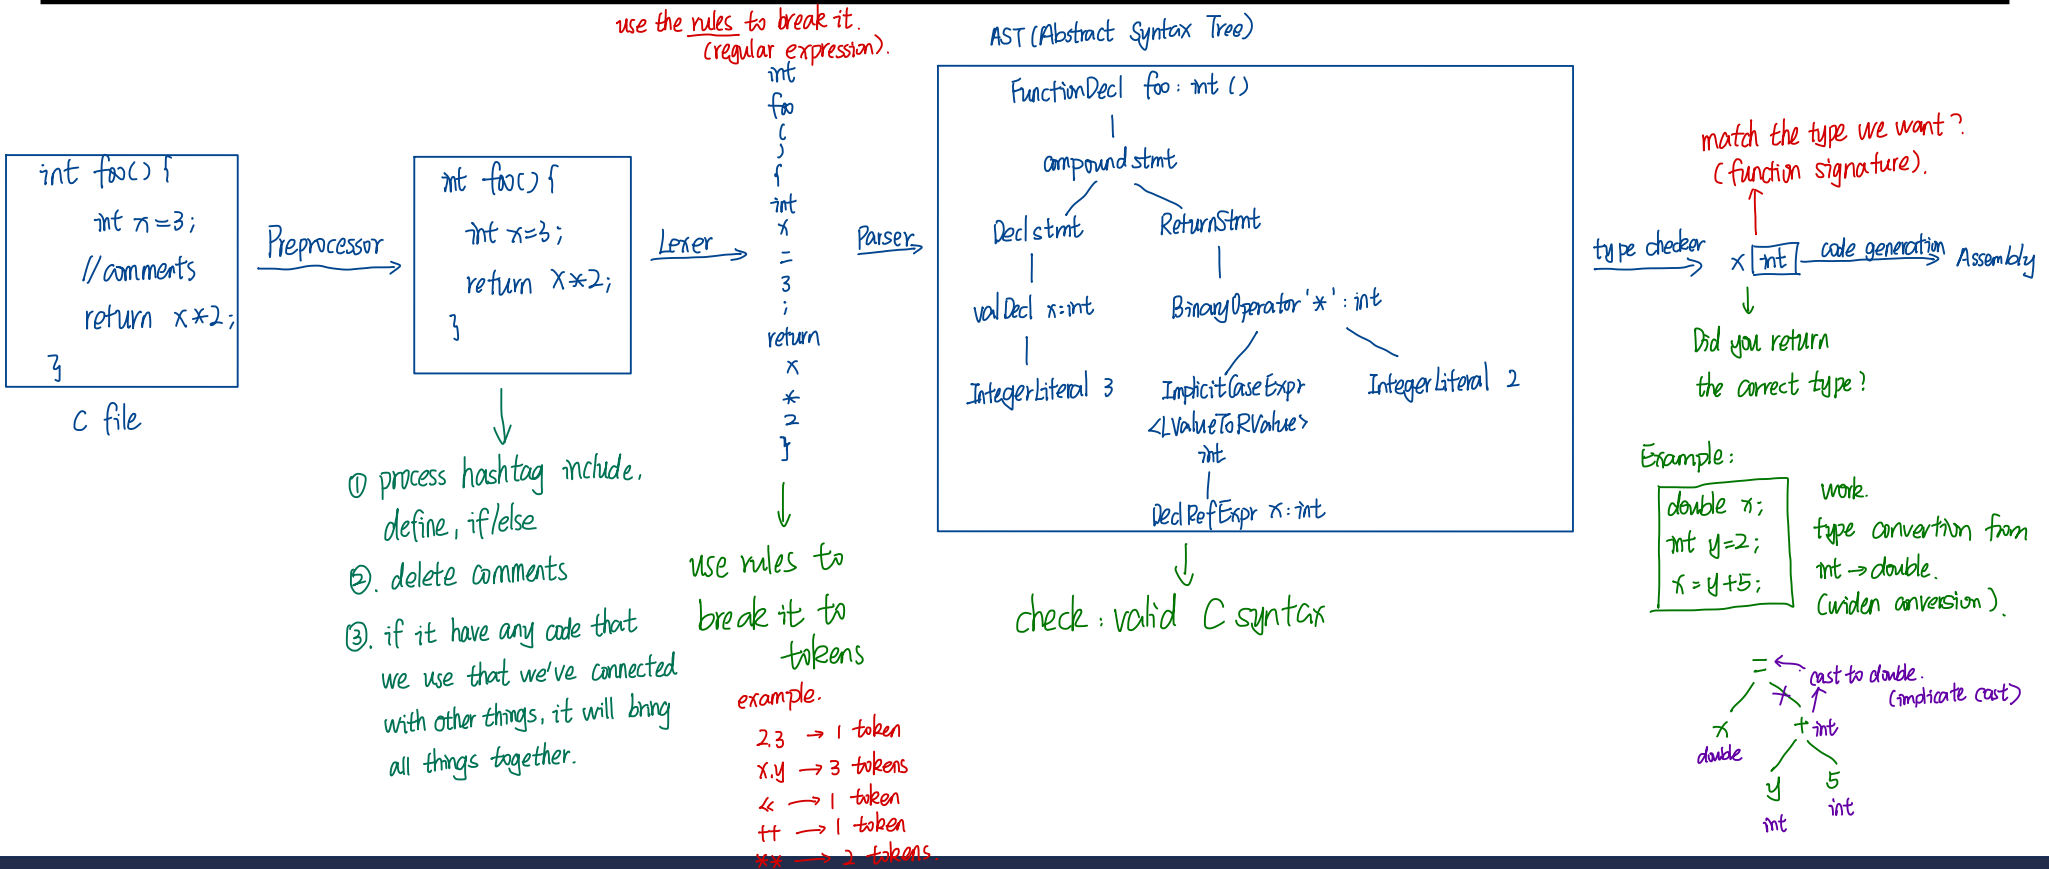 use the rules to break it.
(regular expression).
AST (Abstract Syntax Tree)
int foo() {
int x=3;
//comments
return x*2;
}
C file
Preprocessor
int foo() {
int x=3;
return x*2;
}
① process hashtag include,
define, if/else
②. delete comments
③. if it have any code that
we use that we've connected
with other things, it will bring
all things together.
Lexer
int
foo
(
)
{
int
x
=
3
;
return
x
*
2
}
use rules to
break it to
tokens
example.
2.3 → 1 token
x.y → 3 tokens
<< → 1 token
++ → 1 token
** → 2 tokens.
Parser
FunctionDecl foo: int ()
compound stmt
Decl stmt
ReturnStmt
valDecl x:int
BinaryOperator '*' : int
IntegerLiteral 3
ImplicitCaseExpr
<LValueToRValue>
int
IntegerLiteral 2
DeclRefExpr x:int
check: valid C syntax
type checker
match the type we want?
(function signature).
x int
code generation
Assembly
Did you return
the correct type?
Example:
double x;
int y=2;
x = y+5;
work.
type convertion from
int → double.
(widen conversion).
=
cast to double.
(indicate cast)
x
double
+ int
y
int
5
int